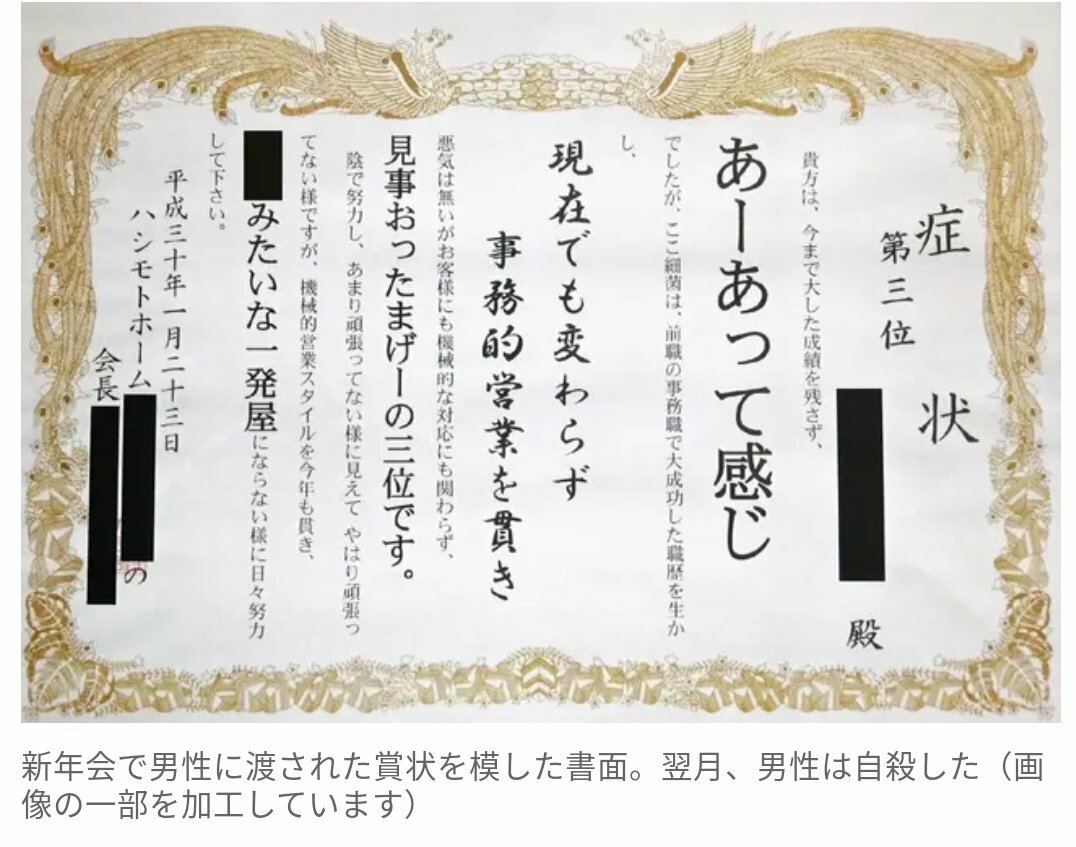 症状
第三位
殿
貴方は、今まで大した成績を残さず、
あーあって感じ
でしたが、ここ細菌は、前職の事務職で大成功した職歴を生か
し、
現在でも変わらず
事務的営業を貫き
悪気は無いがお客様にも機械的な対応にも関わらず、
見事おったまげーの三位です。
陰で努力し、あまり頑張ってない様に見えて やはり頑張っ
てない様ですが、機械的営業スタイルを今年も貫き、
みたいな一発屋にならない様に日々努力
して下さい。
平成三十年一月二十三日
ハシモトホーム
の
会長
新年会で男性に渡された賞状を模した書面。翌月、男性は自殺した（画
像の一部を加工しています）